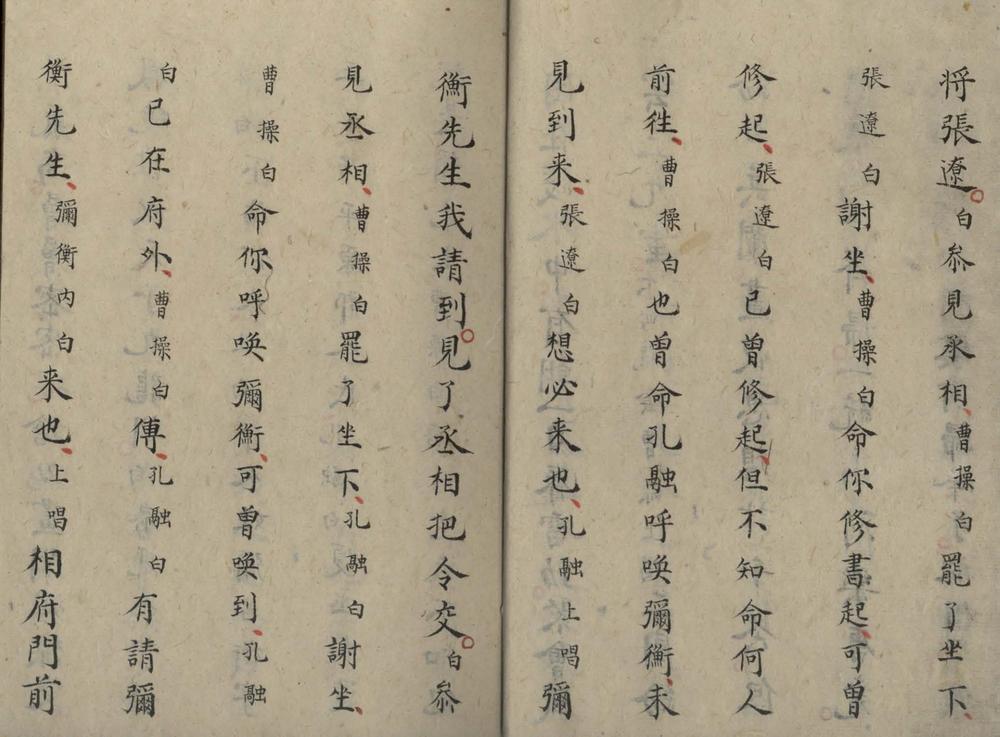 将張遼白叅見丞相曹操白罷了坐下
張遼白謝坐曹操白命你修書起可曾
修起張遼白已曾修起但不知命何人
前徃曹操白也曾命孔融呼唤彌衡未
見到来張遼白想必来也孔融上唱彌
衡先生我請到見了丞相把令交白叅
見丞相曹操白罷了坐下孔融白謝坐
曹操白命你呼唤彌衡可曾唤到孔融
白已在府外曹操白傳孔融白有請彌
衡先生彌衡内白来也上唱相府門前